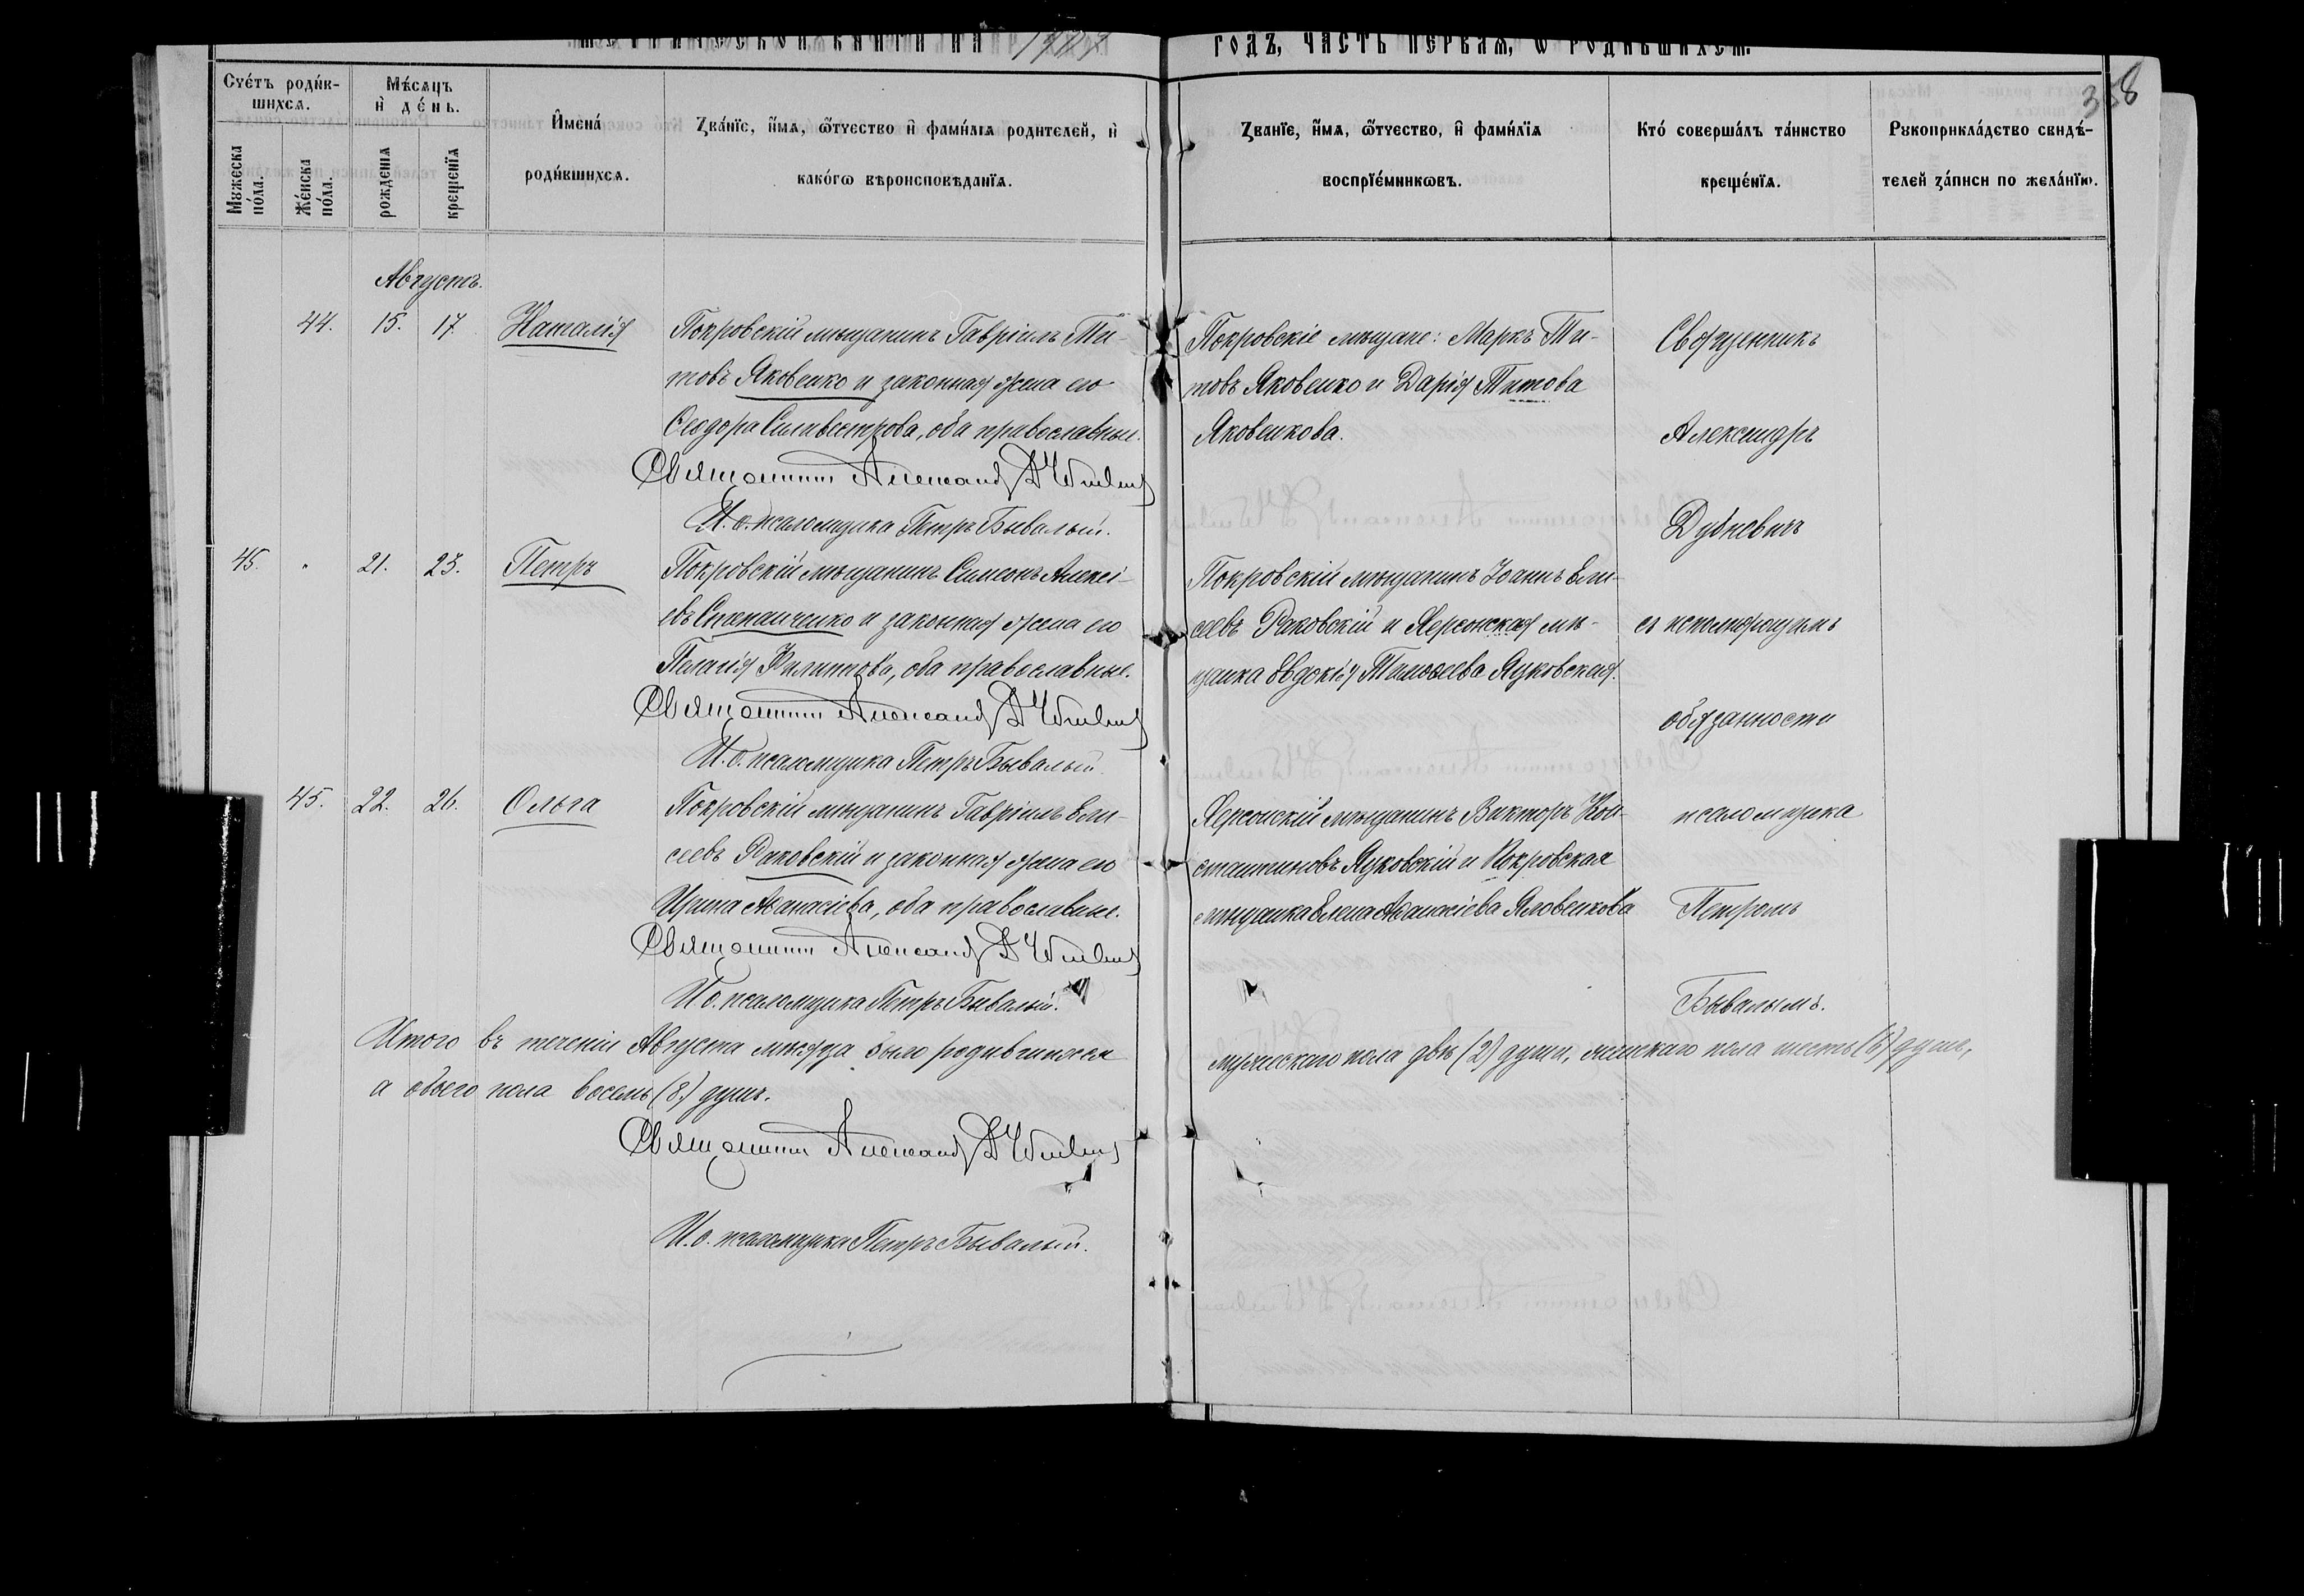 МЕТРИЧЕСКОЙ КНИГИ НА
ГОДЪ, ЧАСТЬ ПЕРВАЯ, Ѡ РОДИВШИХСЯ.
358
Счéтъ роди́в-
шихсѧ.
Мꙋжеска
по́ла.
Же́нска
по́ла.
Мѣ́сѧцъ
и҆ де́нь.
рожденїѧ
крещенїѧ
И҆мена́
роди́вшихсѧ.
Зва́нїе, и҆́мѧ, ѻ҆́тчество и҆ фами́лїѧ родителей, и҆
како́гѡ вѣроисповѣданїѧ.
Званїе, и҆́мѧ, ѻ҆́тчество, и҆ фами́лїѧ
воспрїе́мникѡвъ.
Кто́ соверша́лъ та́инство
креще́нїѧ.
Рꙋкоприкла́дство свидѣ́-
телей за́писи по жела́нїю.
Августъ.
44. 15. 17. Наталія
Покровскій мѣщанинъ Гавріилъ Ти-
товъ Яковенко и законная жена его
Ѳеодора Силивестрова, оба православные.
Священникъ Александръ Дубневичъ
И. о. псаломщика Петръ Бывалый.
Покровскіе мѣщане: Маркъ Ти-
товъ Яковенко и Дарія Титова
Яковенкова.
Священникъ
Александръ
Дубневичъ
съ исполняющимъ
обязанности
псаломщика
Петромъ
Бывалымъ.
45. " 21. 23. Петръ
Покровскій мѣщанинъ Симеонъ Алексі-
евъ Степанченко и законная жена его
Пелагія Филиппова, оба православные.
Священникъ Александръ Дубневичъ
И. о. псаломщика Петръ Бывалый.
Покровскій мѣщанинъ Іоаннъ Ели-
сеевъ Раковскій и Херсонская мѣ-
щанка Евдокія Тимоѳеева Яцковская.
45. 22. 26. Ольга
Покровскій мѣщанинъ Гавріилъ Ели-
сеевъ Раковскій и законная жена его
Ирина Аѳанасіева, оба православные.
Священникъ Александръ Дубневичъ
И. о. псаломщика Петръ Бывалый.
Херсонскій мѣщанинъ Викторъ Кон-
стантиновъ Яцковскій и Покровская
мѣщанка Елена Аѳанасіева Яковенкова
Итого въ теченіи Августа мѣсяца было родившихся мужескаго пола двѣ (2) души, женскаго пола шесть (6) душъ,
а обоего пола восемь (8) душъ.
Священникъ Александръ Дубневичъ
И. о. псаломщика Петръ Бывалый.